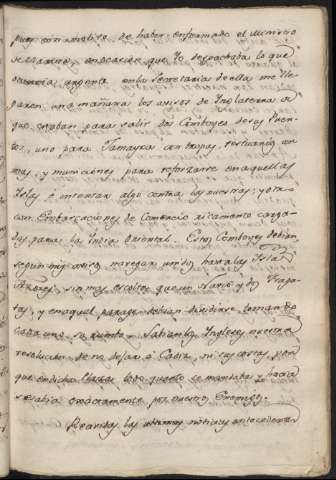 pues con motivo de haber enfermado el ministro
de Marina, encargado que Yo despachara lo que
ocurria urgente en las Secretarias de ella, me lle
garon una mañana los avisos de Inglaterra de
que estaban para salir dos Comboyes de sus Puer
tos, uno para Jamayca con tropas, vestuario, ar
mas, y municiones para reforzarse en aquellas
Islas è intentar algo contra las nuestras; y otro
con Embarcaciones de Comercio ricamente carga
das para la India Oriental. Estos Comboyes debian
seguir mis avisos navegar unidos hasta las Islas
Azores, sin mas escolta que un Navio y dos Fraga
tas, y en aquel parage debian dividirse tomando
cada uno su rumbo. Sabian los Ingleses nuestra
resolucion de no dejar à Cadiz, ni sus costas, por
que en dicha Plaza todo quanto se mandaba y hacia
se sabia exactamente por nuestros Enemigos.
Recividas las ultimas noticias antecedentes